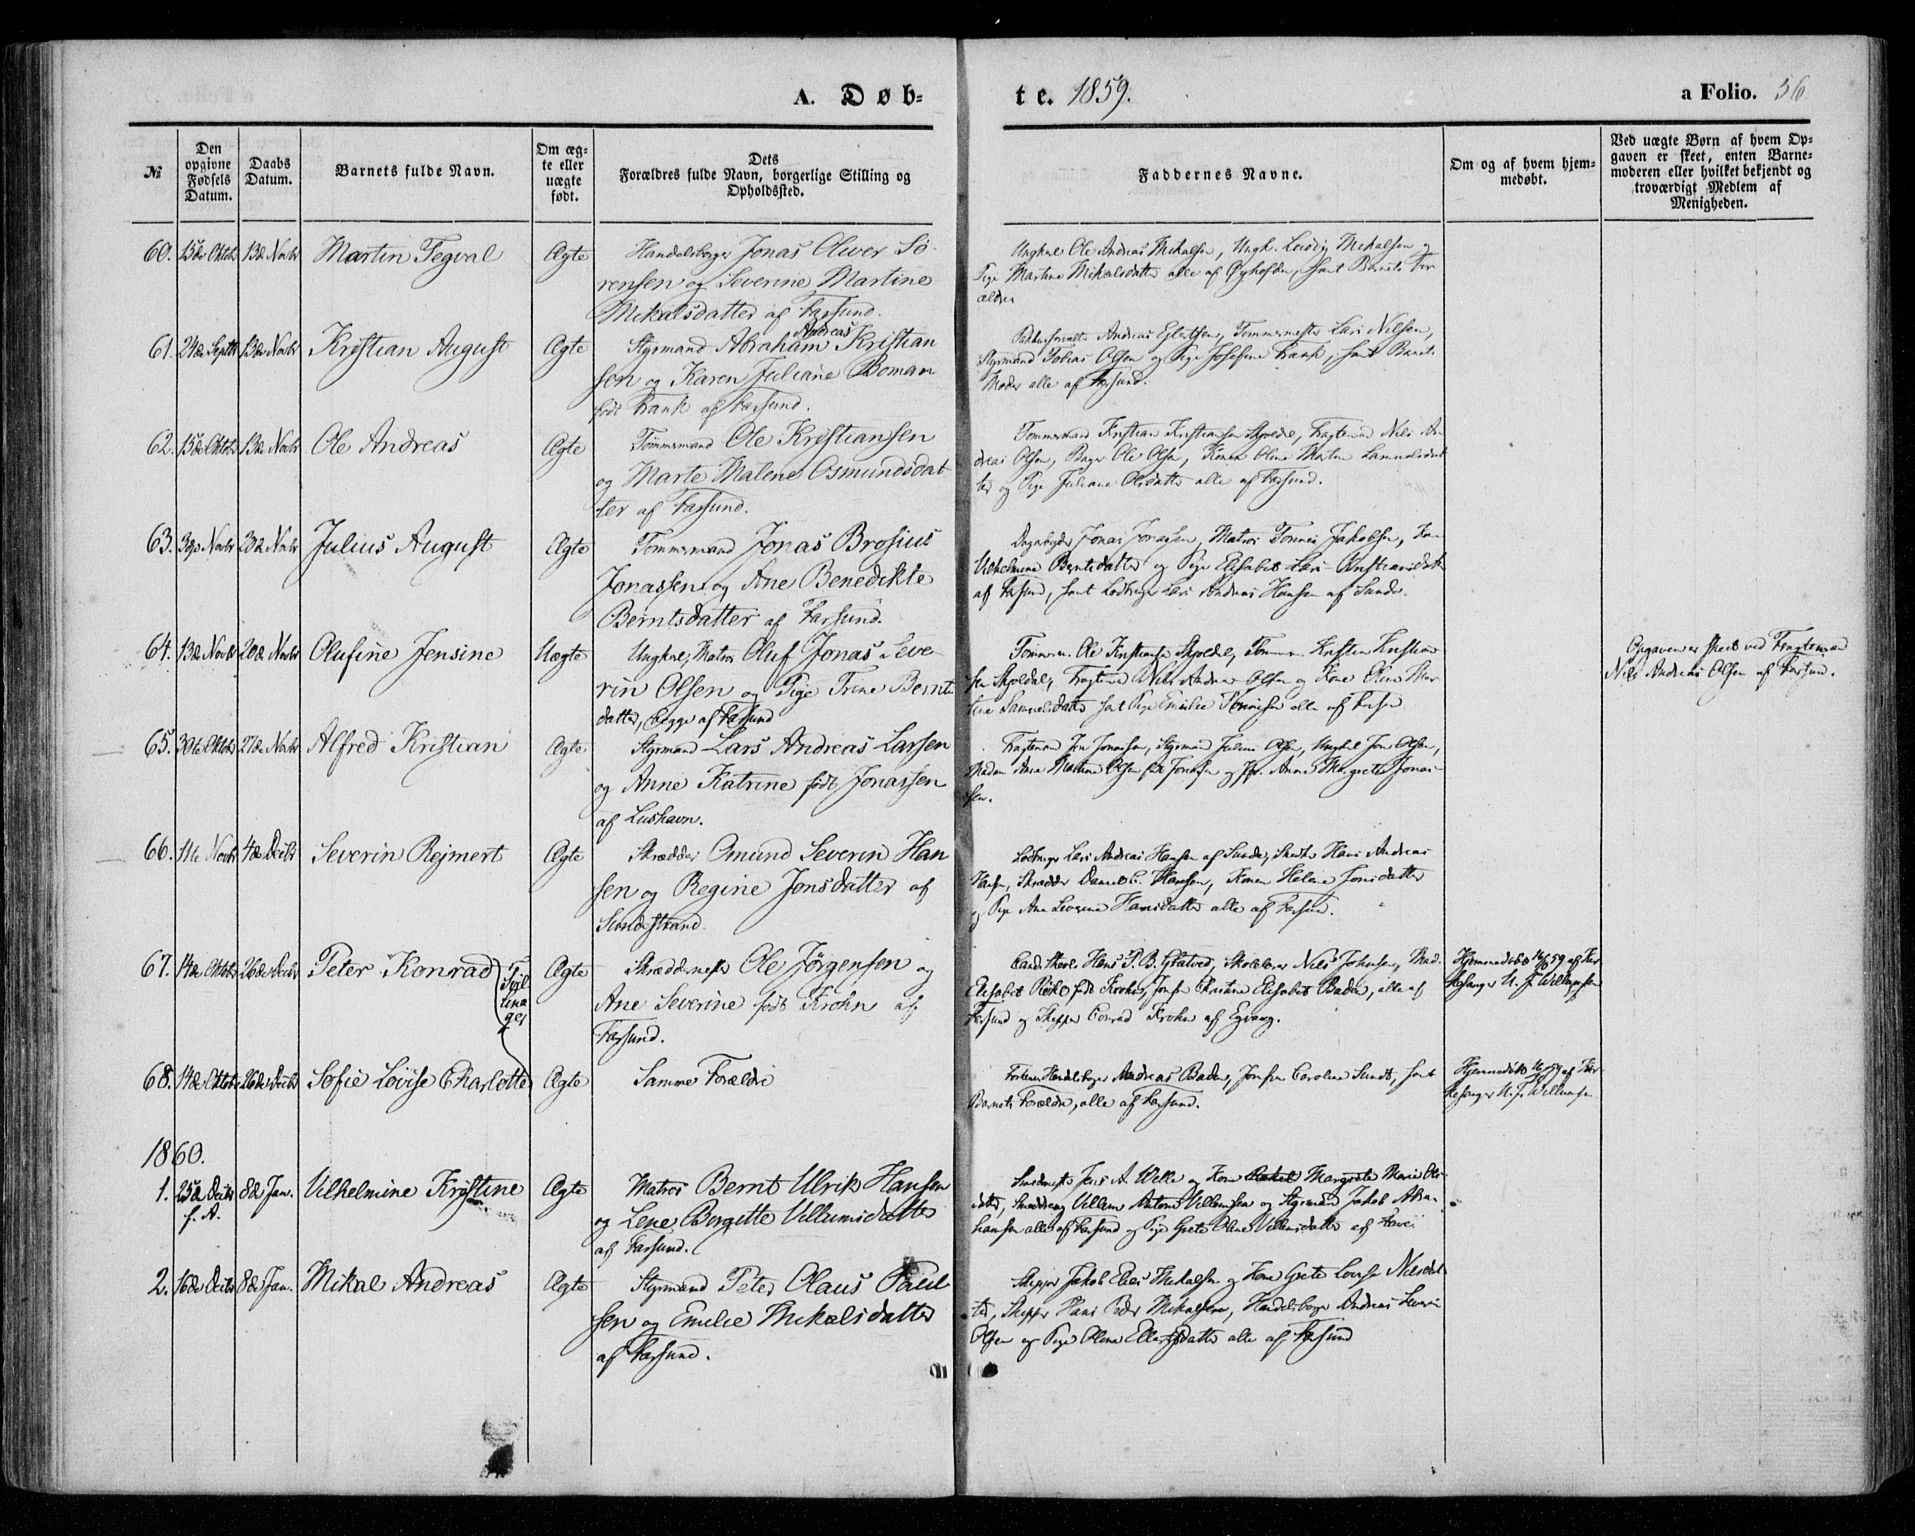 A. Døb-
te. 1859.
a Folio. 56
№
Den opgivne Fødsels Datum.
Daabs Datum.
Barnets fulde Navn.
Om ægte eller uægte født.
Dets Forældres fulde Navn, borgerlige Stilling og Opholdssted.
Faddernes Navne.
Om og af hvem hjemmedøbt.
Ved uægte Børn af hvem Opgaven er skeet, enten Barnemoderen eller hvilket bekjendt og troværdigt Medlem af Menigheden.
60. 15de Oktbr 13de Novbr Martin Tegval Ægte Handelsborger Jonas Oliver Sø-
rensen og Severine Martine
Mikalsdatter af Farsund.
Ungkarl Ole Andreas Mikalsen, Ungk. Lodvig Mikalsen og
Pige Martine Mikalsdatter alle af samt Barnets For
ældre
61. 24de Septbr 13de Novbr Kristian August Ægte Styrmand Abraham Andreas Kristian
sen og Karen Juliane Boman
født Frank af Farsund.
Andreas Eilertsen, Tømmermester Lars Nilsen,
Styrmand Tobias Olsen og Pige Josefine Frank, samt Barnets
Moder alle af Farsund.
62. 15de Oktbr 13de Novbr Ole Andreas Ægte Tømmermand Ole Kristiansen
og Marte Malene Osmundsdat
ter af Farsund.
Tømmermand Kristian Kristiansen Skjoldal, Fragtemand Nils An
dreas Olsen, Bager Ole Olsen, Konen Oline Martine Samuelsdat
ter og Pige Juliane Olsdatter alle af Farsund.
63. 3die Novbr 20de Novbr Julius August Ægte Tømmermand Jonas Brosius
Jonassen og Ane Benedikte
Berntsdatter af Farsund.
Jonas Jonassen, Matros Tønnes Jakobsen,
Vilhelmine Berntsdatter og Pige Elisabet Kristiansdatter
af Farsund, samt Lodsdreng Lars Andreas Hansen af Sunde.
64. 13de Novbr 20de Novbr Olufine Jensine Uægte Ungkarl, Matros Oluf Jonas Seve-
rin Olsen og Pige Trine Bernts
datter, begge af Farsund
Tømmerm. Ole Kristiansen Skjoldal, Tømmerm. Kristen Kristian
sen Skjoldal, Fragtemand Nils Andreas Olsen og Kone Oline Mar
tine Samuelsdatter samt Pige Emilie Tønnesen alle af Farsund
Opgaven er skeet ved Fragtemand
Nils Andreas Olsen af Farsund.
65. 30te Oktbr 27de Novbr Alfred Kristian Ægte Styrmand Lars Andreas Larsen
og Anne Katrine født Jonassen
af Lushavn.
Fragtemand Jon Jonassen, Styrmand Julius Olsen, Ungkarl Jon Olsen,
Madam Ane Martine Olsen født Jonassen og Jfr. Anne Margrete Jonas-
sen.
66. 11te Novbr 4de Decbr Severin Rejmert Ægte Skrædder Omund Severin Han
sen og Regine Jonsdatter af
Sundestrand
Lodsdreng Lars Andreas Hansen af Sunde, Hans Andreas
Hansen, Skrædder Daniel C. Hansen, Konen Helene Jonsdatter
og Pige Ane Severine Hansdatter alle af Farsund.
67. 14de Oktbr 26de Decbr Peter Konrad (Tvil
linager Ægte Skræddermester Ole Jørgensen og
Ane Severine født Krohn af
Farsund.
Cand. theol. Hans P. B. Glatved, Skolelærer Nils Johnsen, Mad.
Elisabet Røke født Krohn, Jomfru Kristine Elisabet Baden, alle af
Farsund og Skipper Conrad Krohn af Egvaag.
Hjemmedøbt 14/10 59 af Kir
kesanger U. F. Willumsen
68. 14de Oktbr 26de Decbr Sofie Lovise Charlotte Ægte Samme Forældre
Handelsborger Andreas Baden, Jomfru Caroline Sundt, samt
Barnets Forældre, alle af Farsund.
Hjemmedøbt 14/10 59 af Kir
kesanger U. F. Willumsen
1860.
1. 25de Decbr
f. A. 8de Jan. Vilhelmine Kristine Ægte Matros Bernt Ulrik Hansen
og Lene Bergitte Villumsdatter
af Farsund.
Smedmester Jens A. Welle og Kone Margrete Marie Ols
datter, Villem Anton Villemsen og Styrmand Jakob Abra-
hamsen alle af Farsund og Pige Grete Oline Villumsdatter af
2. 16de Decbr 8de Jan. Mikal Andreas Ægte Styrmand Peter Olaus Paul
sen og Emilie Mikalsdatter
af Farsund.
Skipper Jakob Elias Mikalsen og Kone Grete Lovise Nilsdat
ter, Skipper Hans Peder Mikalsen, Handelsborger Andreas Severin
Olsen og Pige Olene Ellertsdatter alle af Farsund